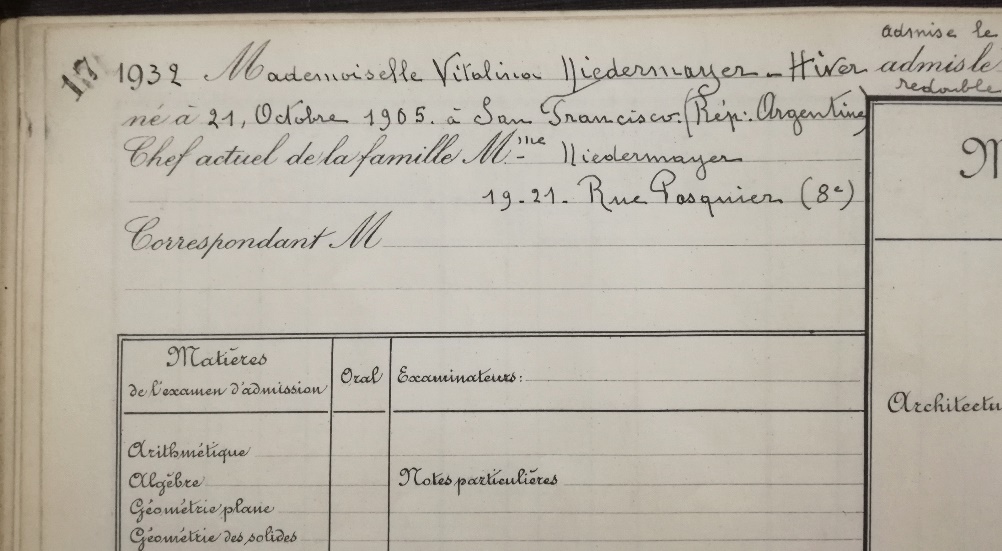 17
1932 Mademoiselle Vitalina Niedermayer - Hiver
né à 21, Octobre 1905. à San Francisco. (Rép: Argentine)
Chef actuel de la famille M.me Niedermayer
19-21- Rue Pasquier (8e)
Correspondant M
admise le
admis le
redouble
M
Matières
de l'examen d'admission
Oral
Examinateurs:
Arithmétique
Algèbre
Géométrie plane
Géométrie des solides
Notes particulières
Architectu